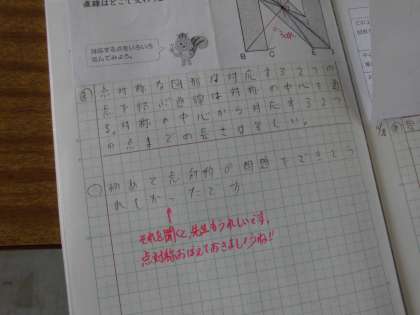 直線はどこで交わ
対応する点をいろいろ
結んでみよう。
3cm
B C E
ま 点対称な図形は対応する2つの
点を結ぶ直線は対称の中心を通
る。対称の中心から対応する2つ
の点までの長さは等しい。
初めて点対称の問題をできてう
れしかったです
それを聞くと、先生もうれしいです。
点対称おぼえておきましょうね!